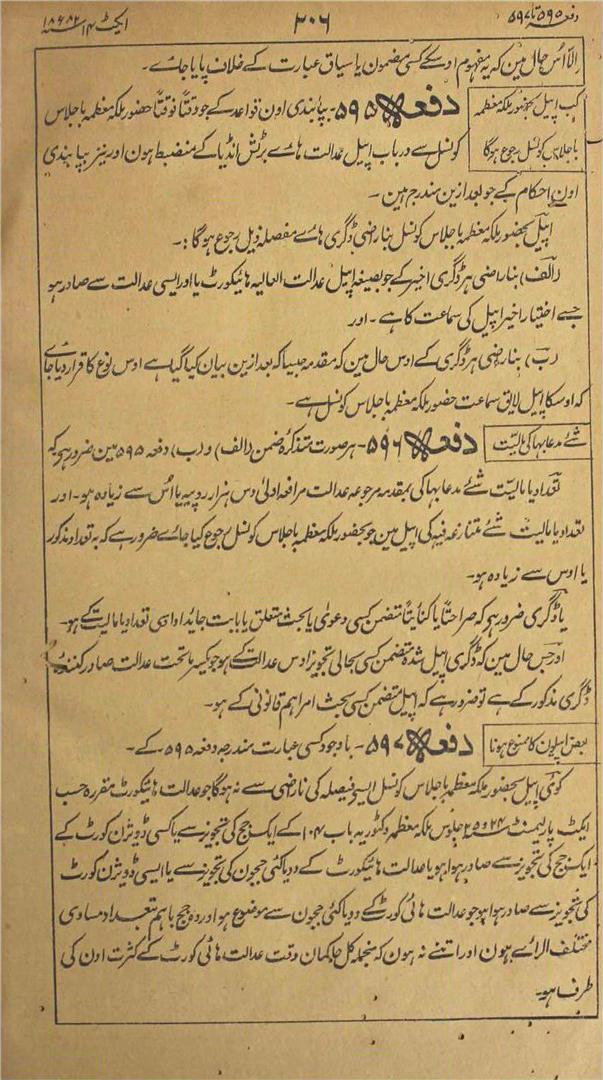 دفعہ ۵۹۵ تا ۵۹۷
۳۰۶
ایکٹ ۱۴ سنہ ۱۸۸۲ع
الا اُس حال مین کہ یہ مفہوم اوسکے کسی مضمون یا سیاق عبارت کے خلاف پایا جاے۔
کب اپیل بحضور ملکہ معظمہ
باجلاس کونسل رجوع ہوگا
دفعہ ۵۹۵۔ بپابندی اون قواعد کے جو وقتاً فوقتاً حضور ملکہ معظمہ باجلاس
کونسل سے درباب اپیل عدالت ہاے برٹش انڈیا کے منضبط ہون اور نیز بپابندی
اون احکام کے جو بعد ازین مندرج ہین۔
اپیل بحضور ملکہ معظمہ باجلاس کونسل بناراضی ڈگری ہاے مفصلہ ذیل رجوع ہوگا:۔
(الف) بناراضی ہر ڈگری اخیر کے جو بصیغہ اپیل عدالت العالیہ ہائیکورٹ یا اور ایسی عدالت سے صادر ہو
جسے اختیار اخیر اپیل کی سماعت کا ہے۔ اور
(ب) بناراضی ہر ڈگری کے اوس حال مین کہ مقدمہ جیسا کہ بعد ازین بیان کیا گیا ہے اوس نوع کا قرار دیا جاے
کہ اوسکا اپیل لایق سماعت حضور ملکہ معظمہ باجلاس کونسل ہے۔
شے مدعا بہا کی مالیت
دفعہ ۵۹۶۔ ہر صورت متذکرہ ضمن (الف) و (ب) دفعہ ۵۹۵ مین ضرور ہے کہ
تعداد یا مالیت شے مدعا بہا کی بمقدمہ مرجوعہ عدالت مرافعہ اولیٰ دس ہزار روپیہ یا اُس سے زیادہ ہو۔ اور
تعداد یا مالیت شے متنازعہ فیہ کی اپیل مین جو بحضور ملکہ معظمہ باجلاس کونسل رجوع کیا جاے ضرور ہے کہ بہ تعداد مذکور
یا اوس سے زیادہ ہو۔
یا ڈگری ضرور ہے کہ صراحتاً یا کنایتاً متضمن کسی دعویٰ یا بحث متعلق یا بابت جائداد اسی تعداد یا مالیت کے ہو۔
اور جس حال مین کہ ڈگری اپیل شدہ متضمن کسی بحالی تجویز اوس عدالت کے ہو جو کہ ماتحت عدالت صادر کنندہ
ڈگری مذکور کے ہے تو ضرور ہے کہ اپیل متضمن کسی بحث امر اہم قانونی کے ہو۔
بعض اپیلون کا ممنوع ہونا
دفعہ ۵۹۷۔ باوجود کسی عبارت مندرجہ دفعہ ۵۹۵ کے۔
کوئی اپیل بحضور ملکہ معظمہ باجلاس کونسل ایسے فیصلہ کی ناراضی سے نہ ہوگا جو عدالت ہائیکورٹ مقررہ حسب
ایکٹ پارلیمنٹ سنہ ۲۴ و ۲۵ جلوس ملکہ معظمہ وکٹوریہ باب ۱۰۴ کے ایک جج کی تجویز سے یا کسی ڈویژن کورٹ کے
ایک جج کی تجویز سے صادر ہوا ہو یا عدالت ہائیکورٹ کے دو یا کئی ججون کی تجویز سے یا ایسی ڈویژن کورٹ
کی تجویز سے صادر ہوا ہو جو عدالت ہائی کورٹ کے دو یا کئی ججون سے موضوع ہو اور وہ جج باہم بتعداد مساوی
مختلف الراے ہون اور اتنے نہ ہون کہ منجملہ کل حاکمان وقت عدالت ہائی کورٹ کے کثرت اون کی
طرف ہو۔